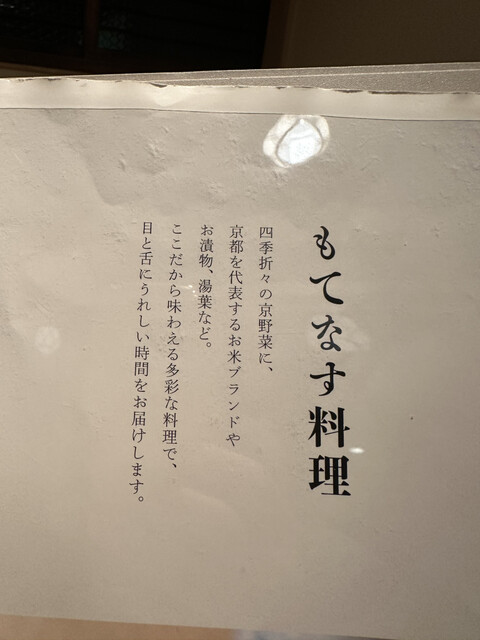 もてなす料理
四季折々の京野菜に、
京都を代表するお米ブランドや
お漬物、湯葉など。
ここだから味わえる多彩な料理で、
目と舌にうれしい時間をお届けします。